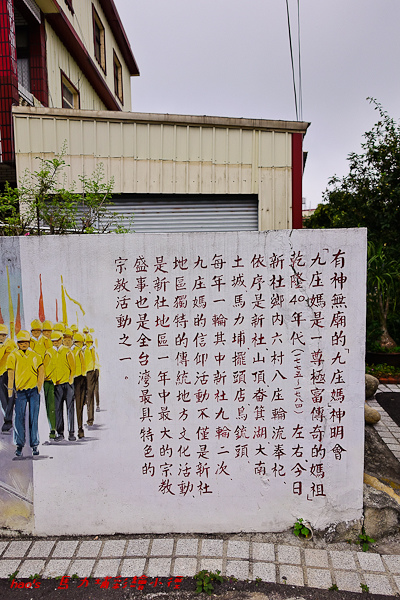 有神無廟的「九庄媽」神明會
「九庄媽」是一尊極富傳奇的「媽祖」
乾隆40年代(一七七五~一八八四)左右今日
新社鄉內六村八庄輪流奉祀,
依序是新社山頂畚箕湖大南
土城馬力埔擺頭店鳥銃頭,
每年一輪其中新社九輪二次,
九庄媽的信仰活動不僅是新社
地區獨特的傳統地方文化活動
是新社地區一年中最大的宗教
盛事也是全台灣最具特色的
宗教活動之一。